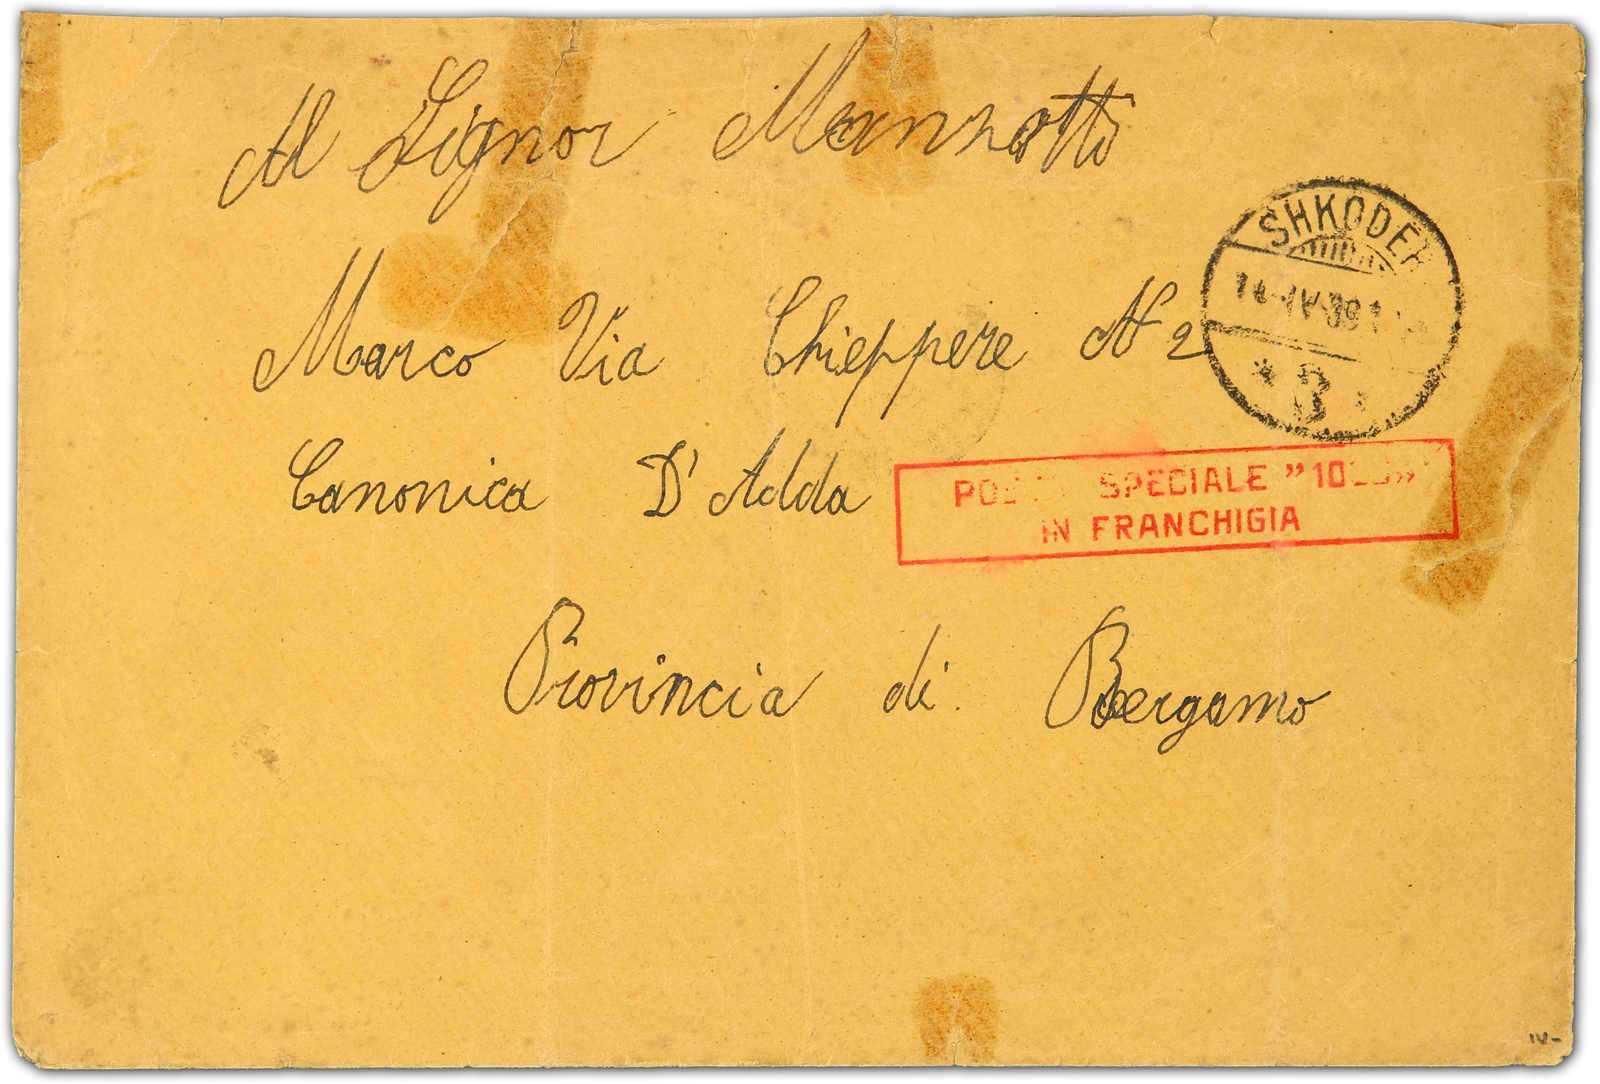 Al Signor Manzotti
Marco Via Chieppere N 2
Canonica D'Adda
Provincia di Bergamo
SHKODER
IV 39
3
SPECIALE
IN FRANCHIGIA
IV-